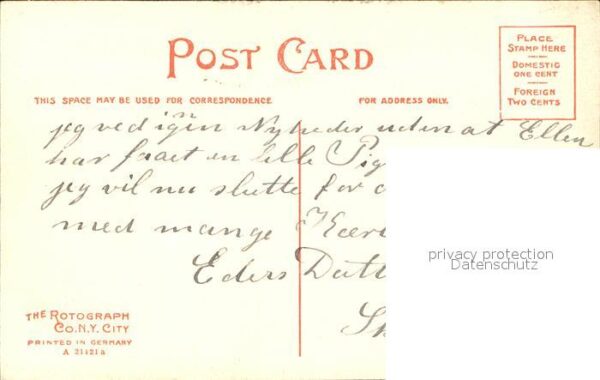 POST CARD
PLACE
STAMP HERE
DOMESTIC
ONE CENT
FOREIGN
TWO CENTS
THIS SPACE MAY BE USED FOR CORRESPONDENCE
FOR ADDRESS ONLY.
jeg ved igen Nyheder uden at Ellen
har faaet en lille Pig
jeg vil nu slutte for
med mange Kær
Eders Datt
privacy protection
Datenschutz
THE ROTOGRAPH
CO. N.Y. CITY
PRINTED IN GERMANY
A 21421a